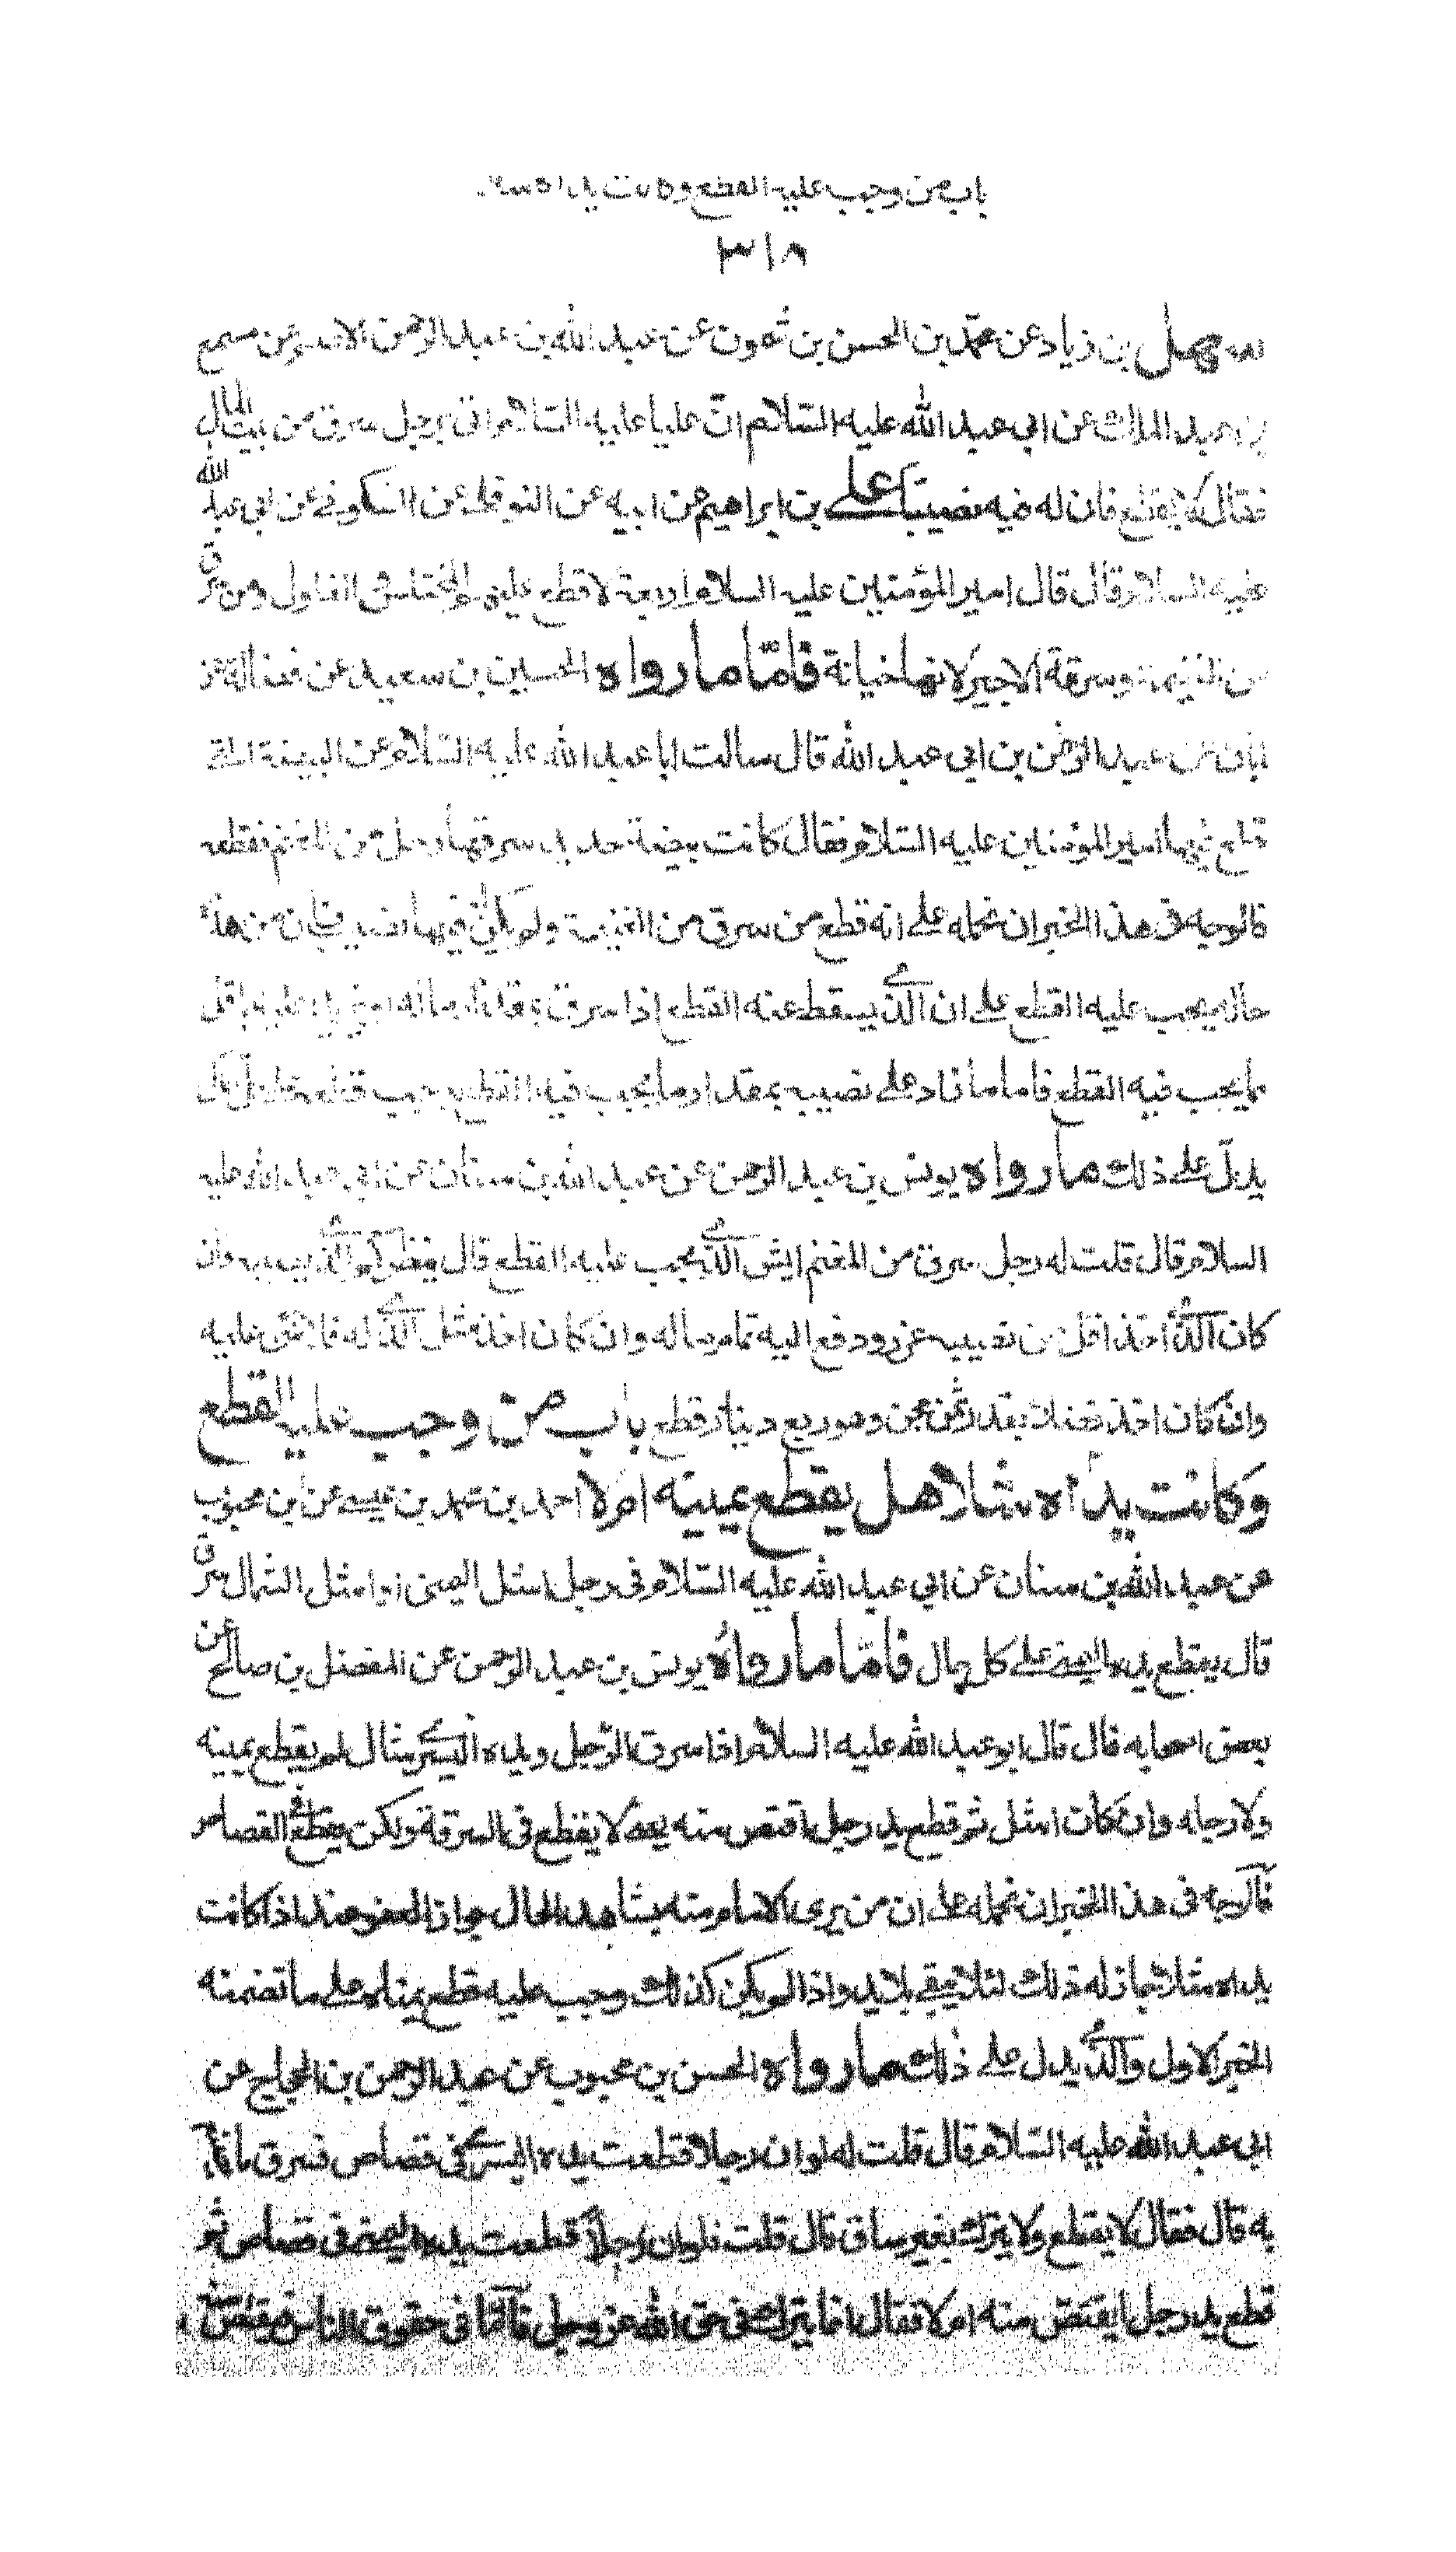 باب من وجب عليه القطع وكانت يداه
٣١٨
سهل بن زياد عن محمد بن الحسن بن شمون عن عبد الله بن عبد الرحمن الاصم عن مسمع
بن عبد الملك عن ابي عبد الله عليه السلام ان عليا عليه السلام اتى برجل سرق من بيت المال
فقال لا يقطع فان له فيه نصيبا علي بن ابراهيم عن ابيه عن النوفلي عن السكوني عن ابي عبد الله
عليه السلام قال قال امير المؤمنين عليه السلام اربعة لا قطع عليهم المختلس الغلول ومن سرق
من الغنيمة وسرقة الاجير لانها خيانة فاما ما رواه الحسين بن سعيد عن فضالة عن
ابان عن عبد الرحمن بن ابي عبد الله قال سالت ابا عبد الله عليه السلام عن البيضة التي
قطع فيها امير المؤمنين عليه السلام فقال كانت بيضة حديد سرقها رجل من المغنم فقطعه
فالوجه في هذا الخبر ان نحمله على انه قطع من سرق من الغنيمة ولم يكن له فيها نصيب فان من هذه
حاله يجب عليه القطع على ان الذي يسقط عنه القطع اذا سرق بمقدار ماله او يزيد عليه باقل
مما يجب فيه القطع فاما ما زاد على نصيبه بمقدار ما يجب فيه القطع وجب قطعه على كل حال
يدل على ذلك ما رواه يونس بن عبد الرحمن عن عبد الله بن سنان عن ابي عبد الله عليه
السلام قال قلت له رجل سرق من المغنم ايش الذي يجب عليه القطع قال ينظر كم الذي يصيبه فان
كان الذي اخذ اقل من نصيبه عزر ودفع اليه تمام ماله وان كان اخذ مثل الذي له فلا شئ عليه
وان كان اخذ فضلا بقدر ثمن مجن وهو ربع دينار قطع باب من وجب عليه القطع
وكانت يداه شلا هل يقطع يمينه ام لا احمد بن محمد بن عيسى عن ابن محبوب
عن عبد الله بن سنان عن ابي عبد الله عليه السلام في رجل اشل اليمنى او اشل الشمال سرق
قال يقطع يده اليمنى على كل حال فاما ما رواه يونس بن عبد الرحمن عن المفضل بن صالح عن
بعض اصحابه قال قال ابو عبد الله عليه السلام اذا سرق الرجل ويده اليسرى شلا لم يقطع يمينه
ولا رجله وان كان اشل ثم قطع يد رجل اقتص منه يعني لا يقطع في السرقة ولكن يقطع في القصاص
فالوجه في هذا الخبر ان نحمله على ان من يرى الامام منه بشاهد الحال جواز العفو عنه اذا كانت
يده شلا جاز له ذلك لئلا يبقى بلا يد واذا لم يكن كذلك وجب عليه قطع يمناه على ما تضمنه
الخبر الاول والذي يدل على ذلك ما رواه الحسن بن محبوب عن عبد الرحمن بن الحجاج عن
ابي عبد الله عليه السلام قال قلت له لو ان رجلا قطعت يده اليسرى في قصاص فسرق ما يصنع
به قال فقال لا يقطع ولا يترك بغير ساق قال قلت فلو ان رجلا قطعت يده اليمنى في قصاص ثم
قطع يد رجل ايقتص منه ام لا فقال انما يترك في حق الله عز وجل فاما في حقوق الناس فيقتص